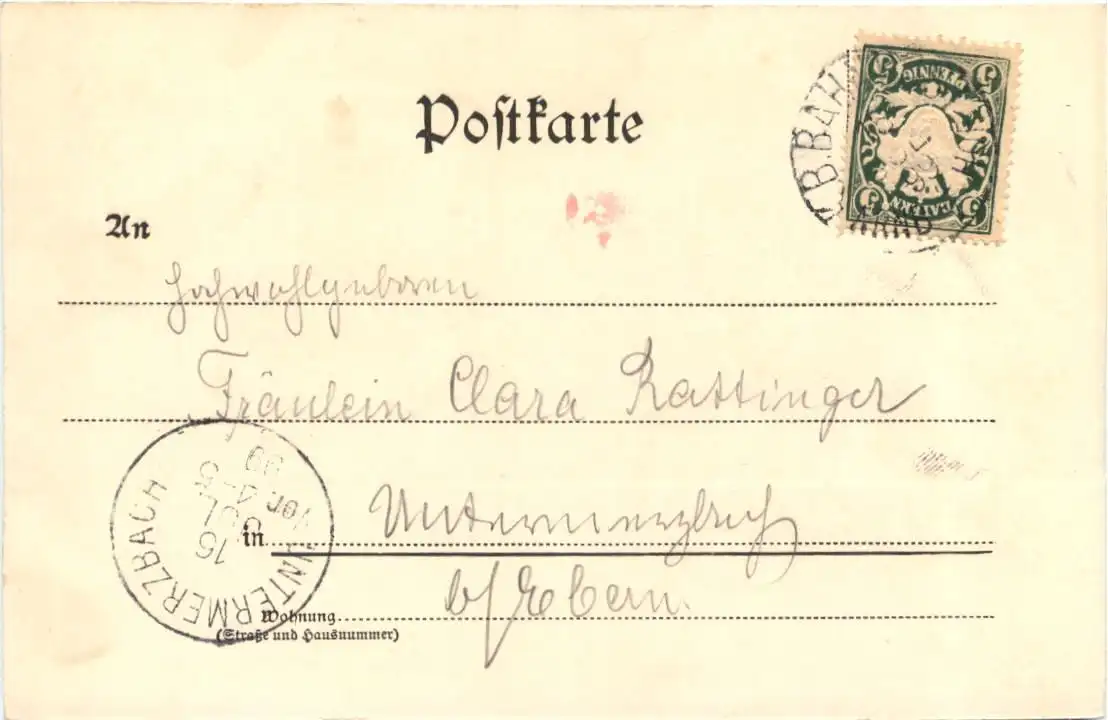 Postkarte
5 5
PFENNIG
BAYERN
5 5
B.BAH
An
Hochwohlgeboren
Fräulein Clara Rattinger
in Untermerzbach
b/Ebern.
Wohnung
(Straße und Hausnummer)
UNTERMERZBACH
15
JUL
Vor. 4-5
99